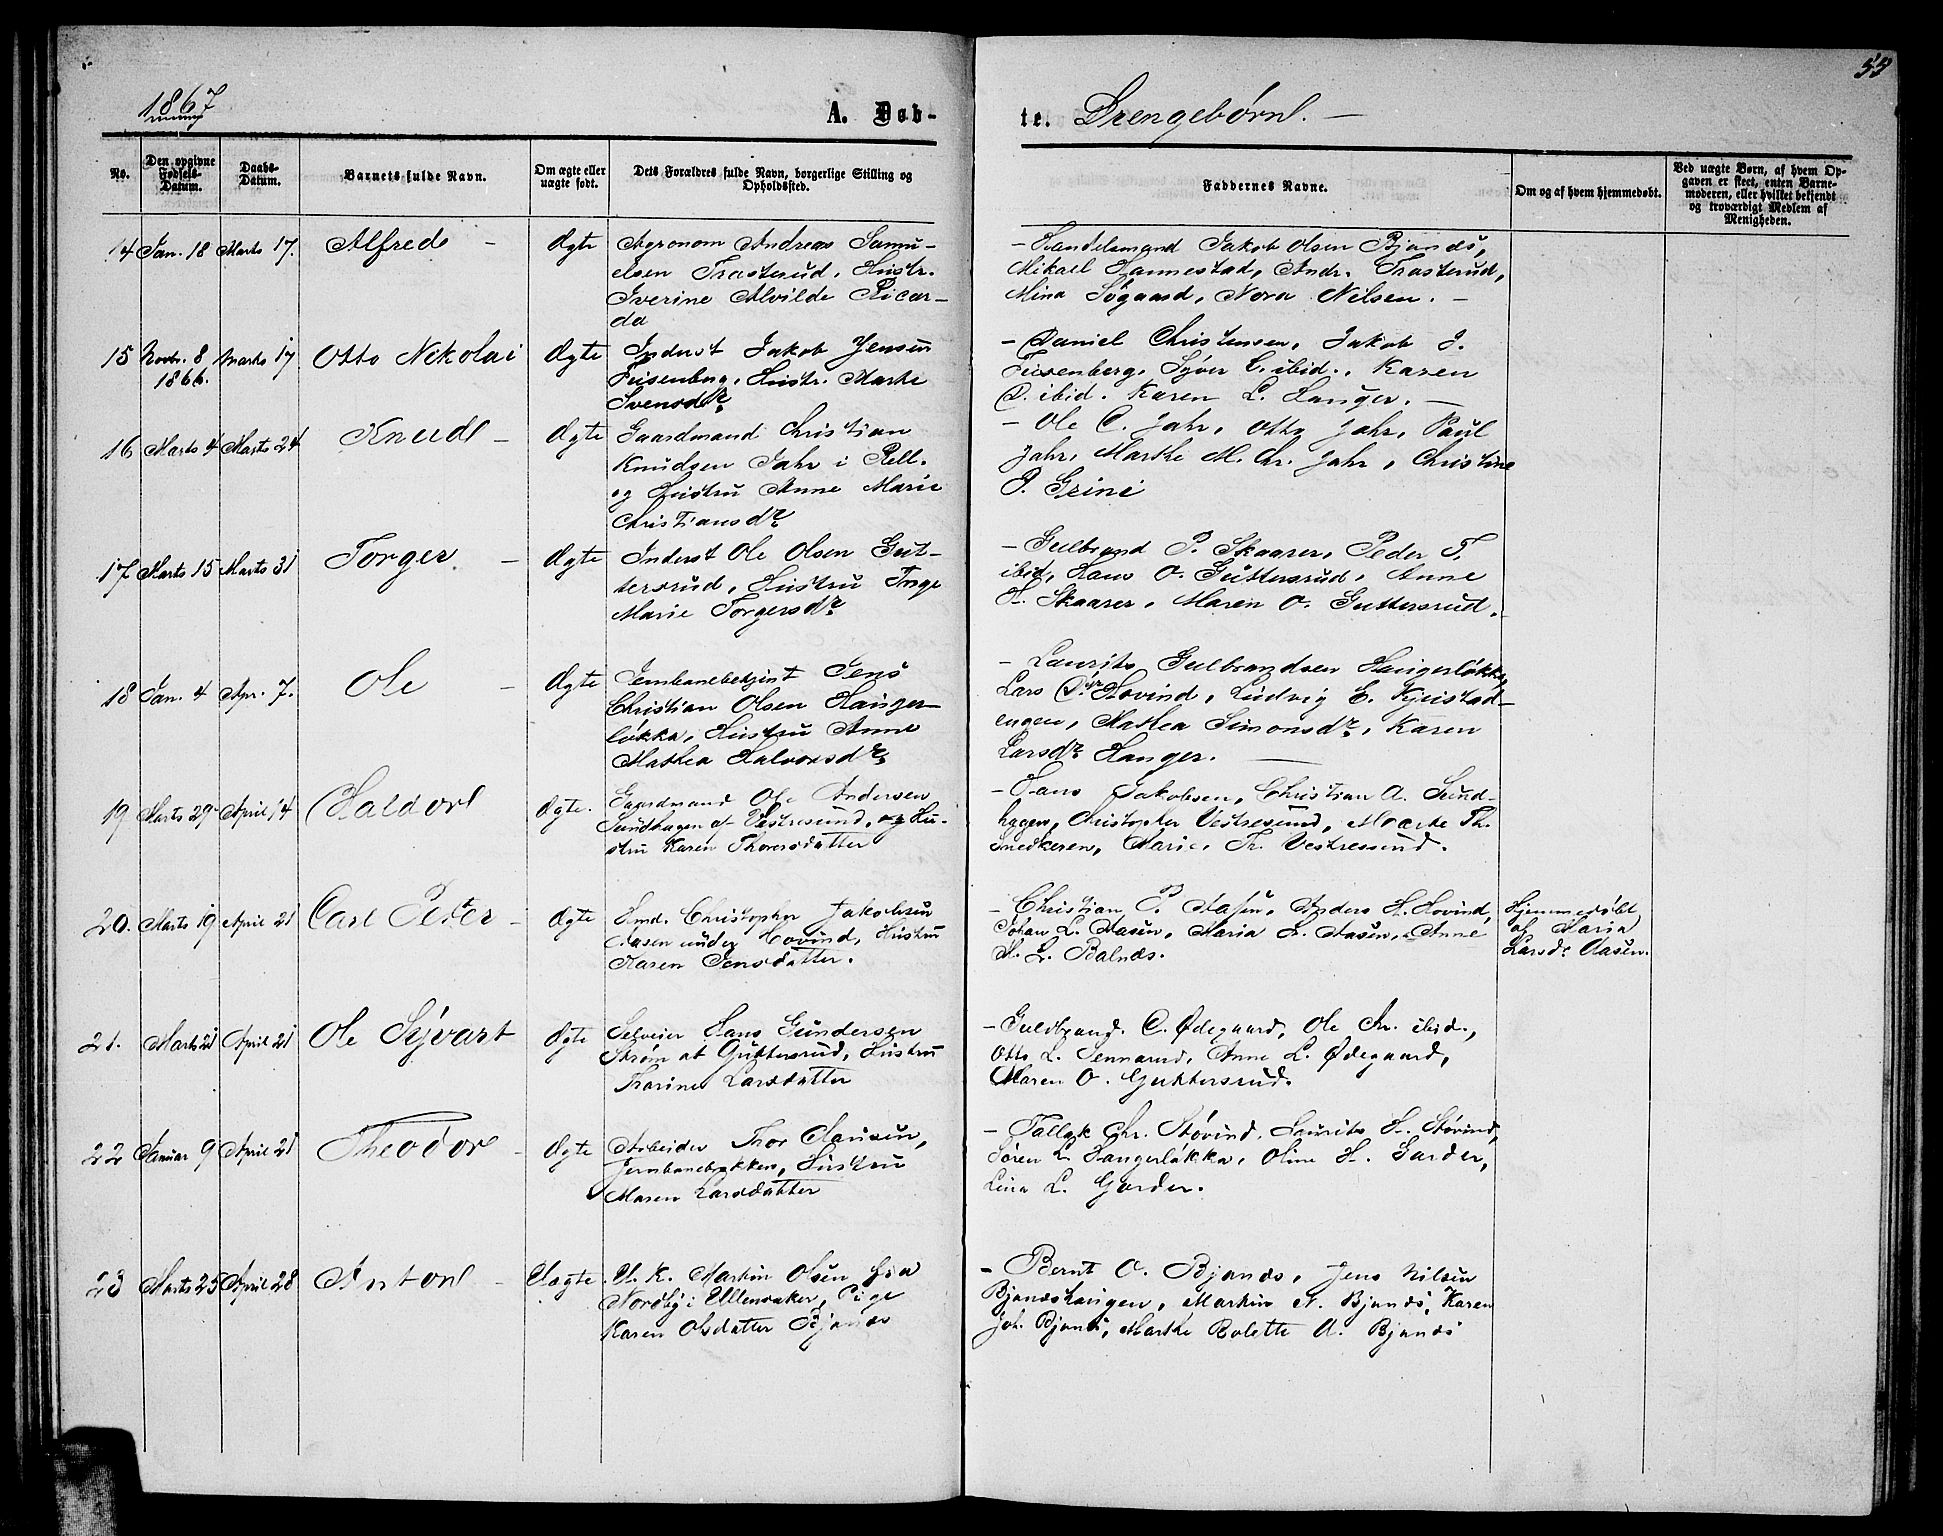 55
1867
A. Døb-
te. Drengebørn. —
No.
Den opgivne Fødsels-Datum.
Daabs-Datum.
Barnets fulde Navn.
Om ægte eller uægte født.
Dets Forældres fulde Navn, borgerlige Stilling og Opholdssted.
Faddernes Navne.
Om og af hvem hjemmedøbt.
Ved uægte Børn, af hvem Opgaven er skeet, enten Barnemoderen, eller hvilket bekjendt og troværdigt Medlem af Menigheden.
14 Jan. 18 Marts 17. Alfred – Ægte
Agronom Andreas Samu-
elsen Trosterud, Hustr.
Iverine Alvilde Ricar-
da
– Handelsmand Jakob Olsen Bjanæs,
Mikael Hannestad, Andr. Trosterud,
Mina Søgaard, Nora Nilsen. –
15 Novbr. 8 1866. Marts 17 Otto Nikolai Ægte
Inderst Jakob Jensen
Feisenberg, Hustr. Marte
Svensdr.
– Daniel Christensen, Jakob J.
Feisenberg, Syver C. ibid., Karen
D. ibid. Karen L. Hanger. –
16 Marts 4 Marts 24 Knud – Ægte
Gaardmand Christian
Knudsen Jahr i Rell.
og Hustru Anne Marie
Christiansdr.
– Ole C. Jahr, Otto Jahr, Paul
Jahr, Marthe M. Chr. Jahr, Christine
P. Grini
17 Marts 15 Marts 31 Torger. – Ægte
Inderst Ole Olsen Gut-
tersrud, Hustru Inge
Marie Torgersdr.
– Gulbrand P. Skaarer, Peder T.
ibid, Hans O. Guttersrud, Anne
H. Skaarer, Maren O. Guttersrud.
18 Jan. 4 Apr. 7. Ole – Ægte
Jernbanebetjent Jens
Christian Olsen Hanger-
løkka, Hustru Anne
Mathea Halvorsdr.
– Laurits Gulbrandsen Hangerløkka,
Lars Hovind, Ludvig E. Kjeistad-
engen, Mathea Simonsdr., Karen
Larsdr. Hanger. —
19 Marts 29 April 14 Haldor Ægte.
Gaardmand Ole Andersen
Sundhagen af Vestresund, og Hu-
stru Karen Thorersdatter
– Hans Jakobsen, Christian A. Sund-
hagen, Christopher Vestresund, Marte Th.
Snedkeren, Marie Tr. Vestresund.
20. Marts 19 April 21 Carl Peter – Ægte
Hmd. Christopher Jakobsen
Aasen under Hovind, Hustru
Karen Jensdatter.
– Christian P. Aasen, Anders H. Hovind,
Johan L. Aasen, Maria L. Aasen, Anne
H. L. Balnæs.
Hjemmedøbt
af Maria
Larsdr Aasen.
21. Marts 21 April 21 Ole Syvart Ægte
Selveier Hans Gundersen
Strøm at Guttersrud, Hustru
Karine Larsdatter
– Guldbrand C. Ødegaard, Ole Chr. ibid.,
Otto L. Sennerud, Anne L. Ødegaard,
Maren O. Guttersrud.
22 Januar 9 April 21 Theodor – Ægte
Arbeider Thor Hansen,
Jernbanebakken, Hustru
Maren Larsdatter
– Tallak Chr. Støvind, Laurits H. Støvind,
Søren L. Hangerløkka, Oline H. Garder,
Lina L. Garder.
23 Marts 25 April 28 Anton – Uægte.
U. K. Martin Olsen fra
Nordby i Ullensaker, Pige
Karen Olsdatter Bjanæs
– Bernt O. Bjanæs, Jens Nilsen
Bjanæshaugen, Martin N. Bjanæs, Karen
Joh. Bjanæs, Marthe Bolette A. Bjanæs